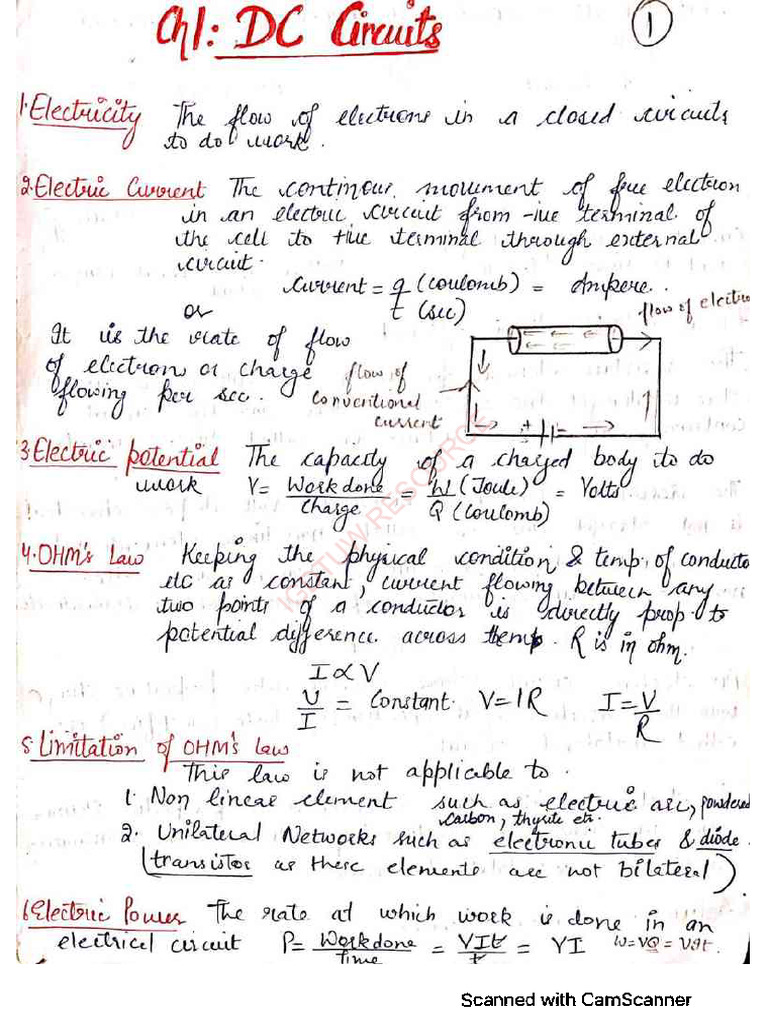 Ch1: DC Circuits
1
1. Electricity The flow of electrons in a closed circuits
to do work.
2. Electric Current The continous movement of free electron
in an electric circuit from -ive terminal of
the cell to +ive terminal through external
circuit.
Current = q (coulomb) / t (sec) = Ampere..
or
It is the rate of flow
of electron or charge
flowing per sec.
flow of electro
flow of
conventional
current
+ -
3. Electric potential The capacity of a charged body to do
work V = Work done / Charge = W (Joule) / Q (Coulomb) = Volts
4. OHM's Law Keeping the physical condition & temp. of conducto
etc as constant, current flowing between any
two points of a conductor is directly prop. to
potential difference across them. R is in ohm.
I ∝ V
V/I = Constant. V = IR I = V/R
5. Limittation of OHM's Law
This law is not applicable to.
1. Non linear element such as electric arc, powdered
carbon, thyrite etc.
2. Unilateral Networks such as electronic tubes & diode.
(transistor as these elements are not bilateral)
6. Electric Power The rate at which work is done in an
electrical circuit P = Work done / Time = VIt / t = VI W = VQ = VIt.
Scanned with CamScanner